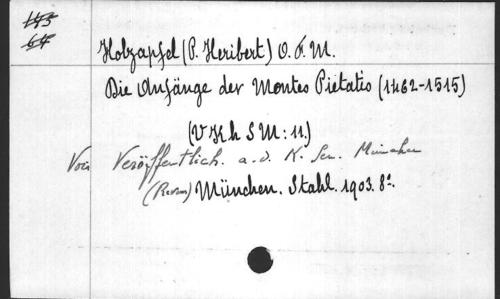 193
64
Holzapfel (P. Heribert) O. F. M.
Die Anfänge der Montes Pietatis (1462-1515)
(V K h S M : 11.)
Voir Veröffentlich. a. d. K. Sem. München
München. Stahl. 1903. 8º.